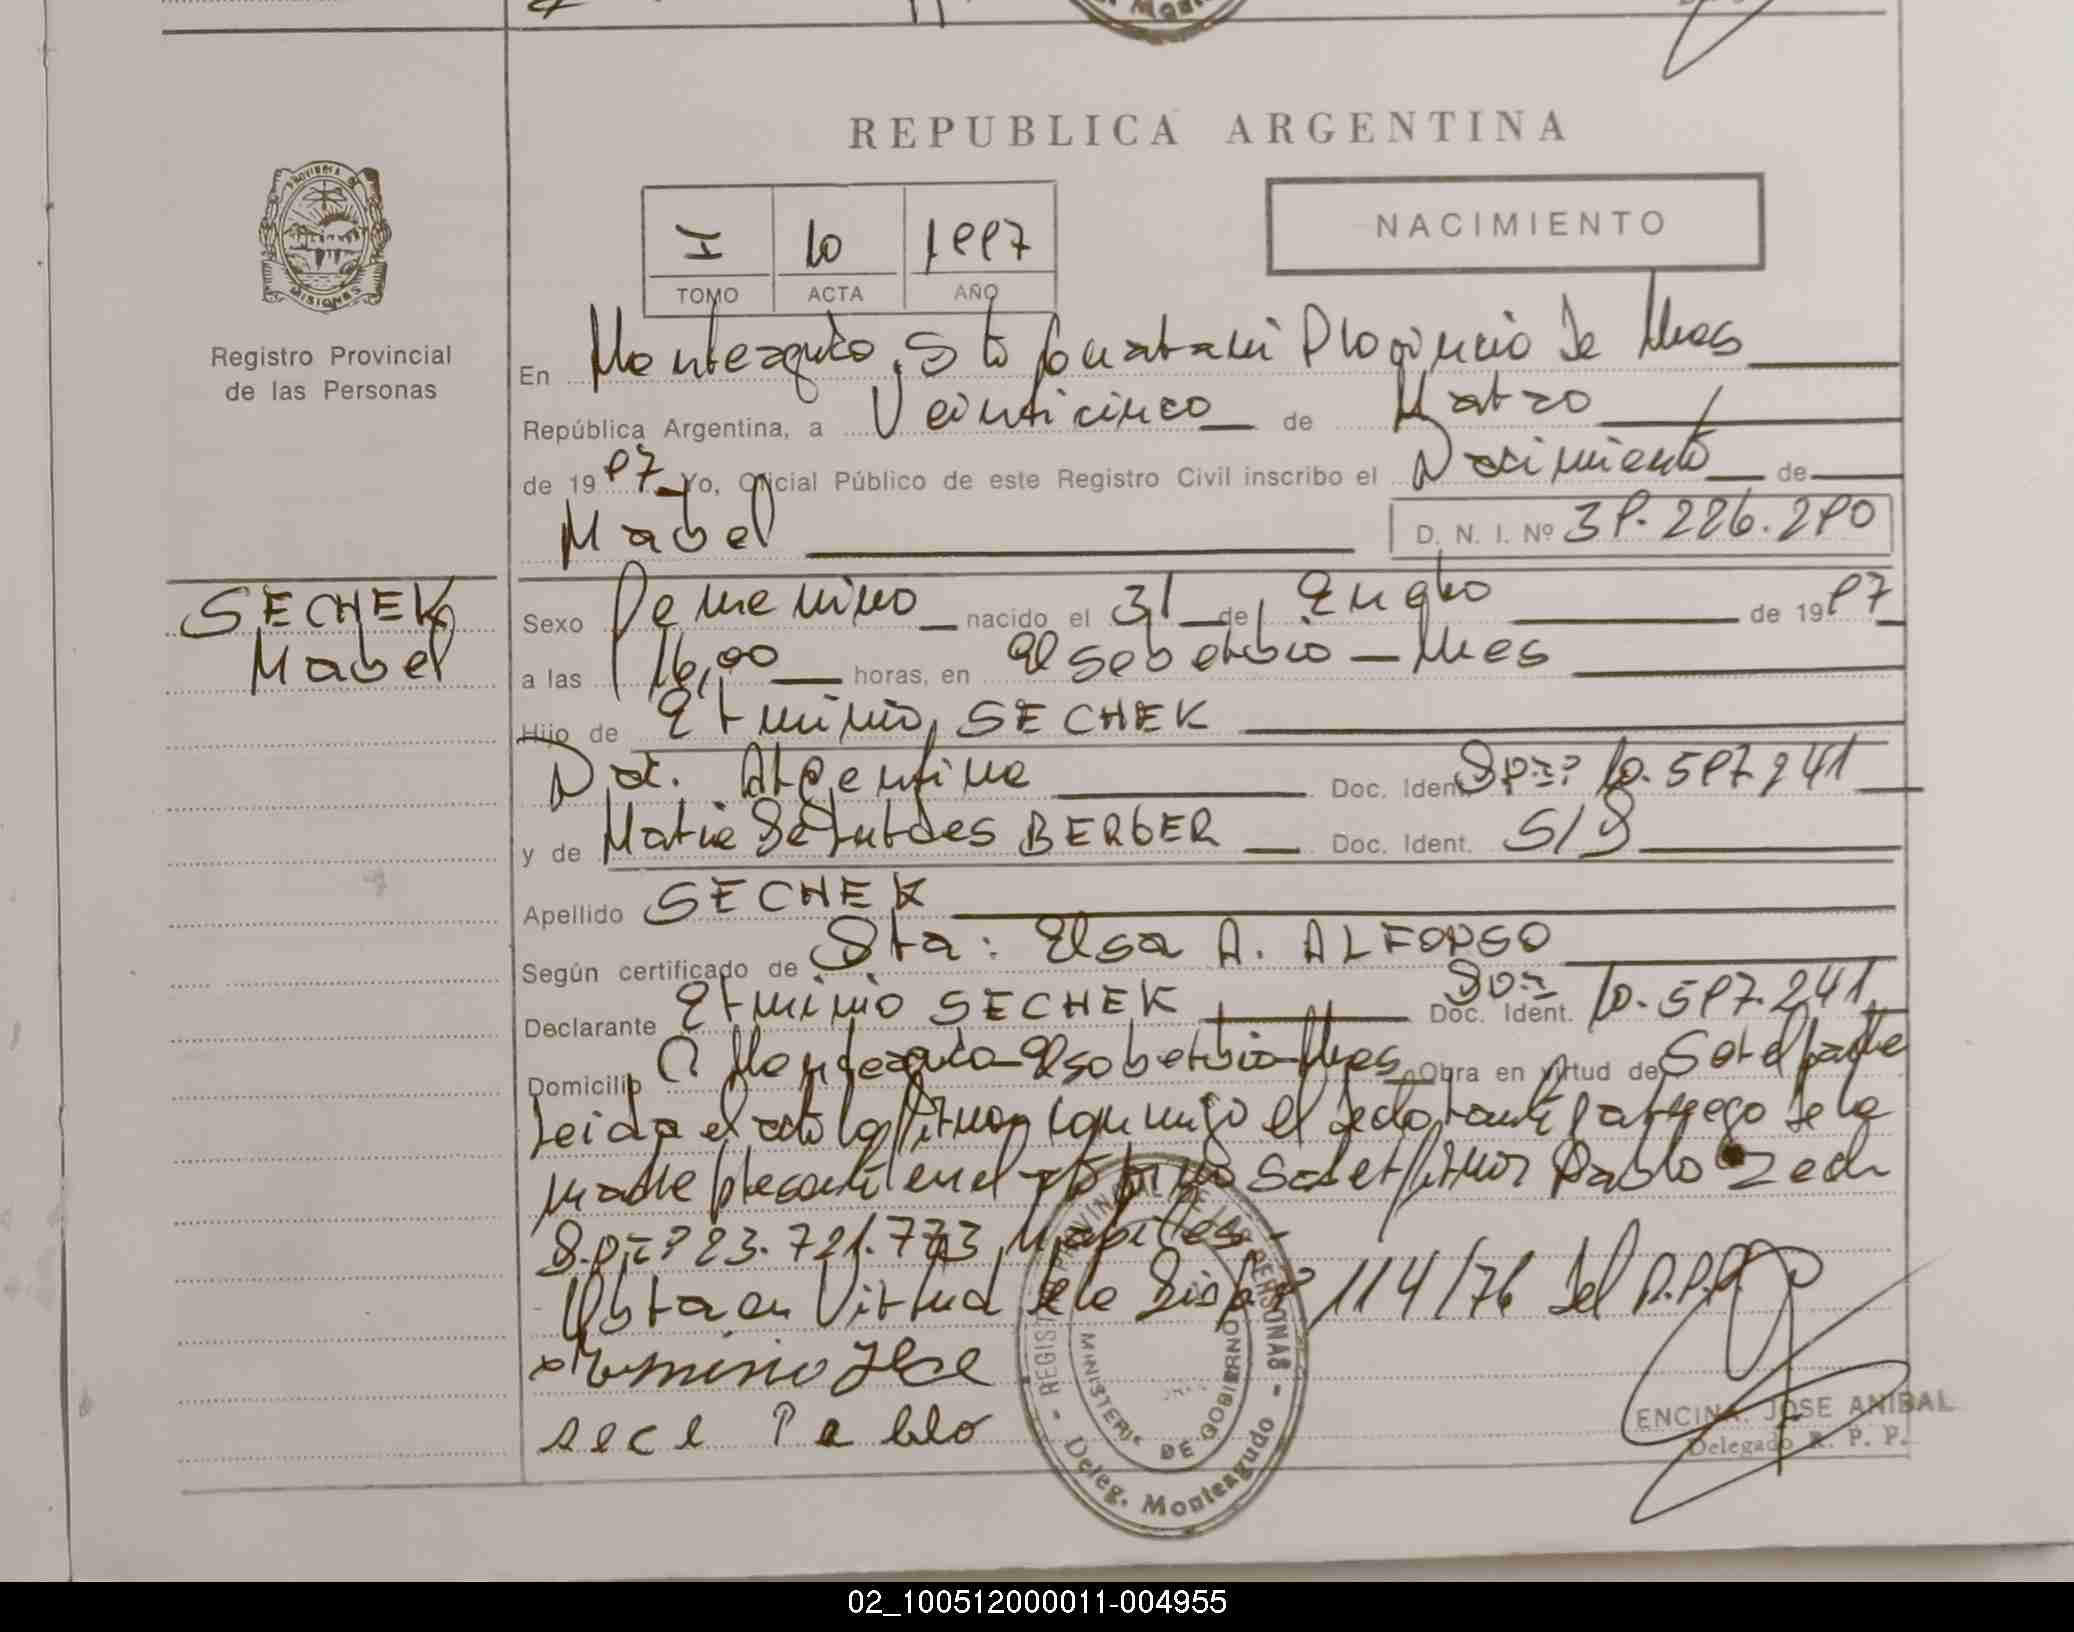 REPUBLICA ARGENTINA
PROVINCIA DE
MISIONES
Registro Provincial
de las Personas
I 10 1997
TOMO ACTA AÑO
NACIMIENTO
En Monteagudo, Dto Guarani Provincia de Mnes
República Argentina, a Veinticinco de Marzo
de 1997 Yo, Oficial Público de este Registro Civil inscribo el Nacimiento de
Mabel D. N. I. Nº 39.226.290
SECHEK
Mabel
Sexo Femenino nacido el 31 de Enero de 1997
a las 16,00 horas, en El soberbio - Mnes
Hijo de Erminio SECHEK
Nac. Argentina Doc. Ident. Dni: 10.597.241
y de Maria de Lurdes BERGER Doc. Ident. S/D
Apellido SECHEK
Según certificado de Dra: Elsa A. ALFONSO
Declarante Erminio SECHEK Doc. Ident. Dni 10.597.241
Domicilio C. Monteagudo - El soberbio - Mnes Obra en virtud de Ser el padre
Leida el acta la firman conmigo el declarante y a ruego de la
madre presente en el acto por no Saber firmar Pablo Zech
D.ni: 23.721.773
Obra en Virtud de la Disp. nº 114/76 del R.P.P.
Pablo
REGISTRO PROVINCIAL DE LAS PERSONAS
MINISTERIO DE GOBIERNO
Deleg. Monteagudo
ENCINA, JOSE ANIBAL
Delegado R. P. P.
02_100512000011-004955